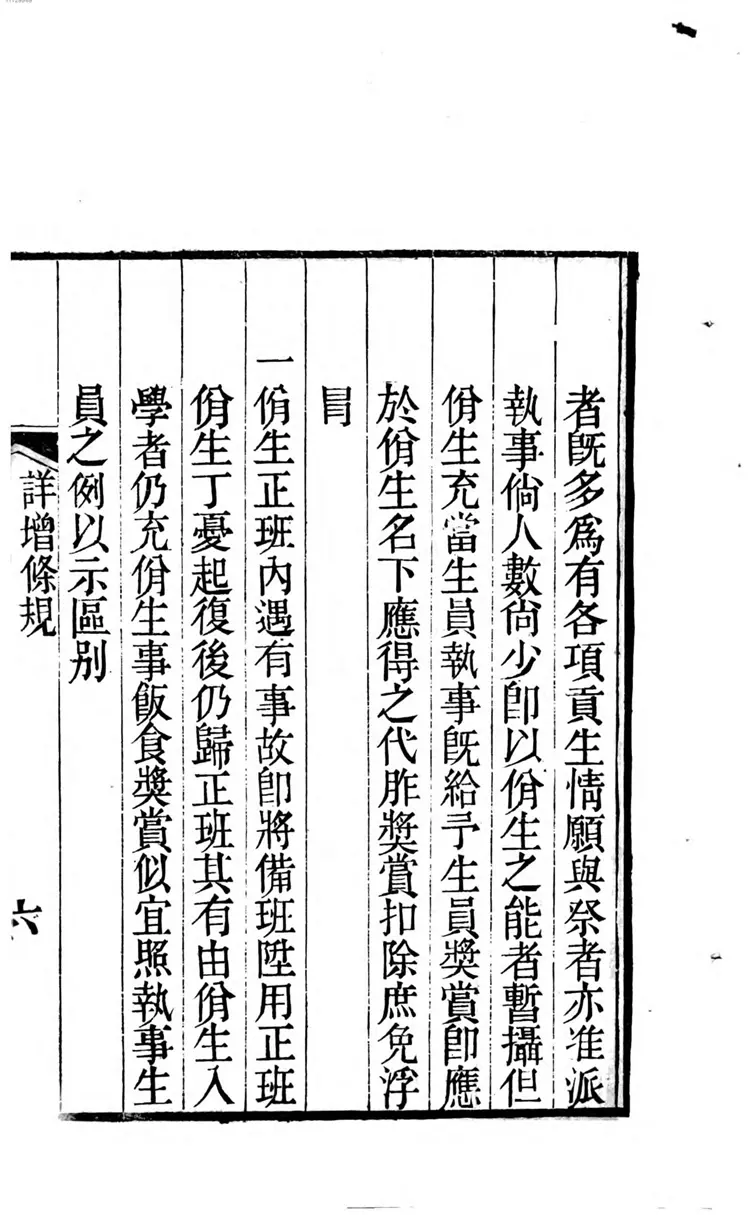 者旣多爲有各項貢生情願與祭者亦准派
執事倘人數尙少卽以佾生之能者暫攝但
佾生充當生員執事旣給予生員獎賞卽應
於佾生名下應得之代胙獎賞扣除庶免浮
冐
一佾生正班內遇有事故卽將備班陞用正班
佾生丁憂起復後仍歸正班其有由佾生入
學者仍充佾生事飯食獎賞似宜照執事生
員之例以示區别
詳增條規
六